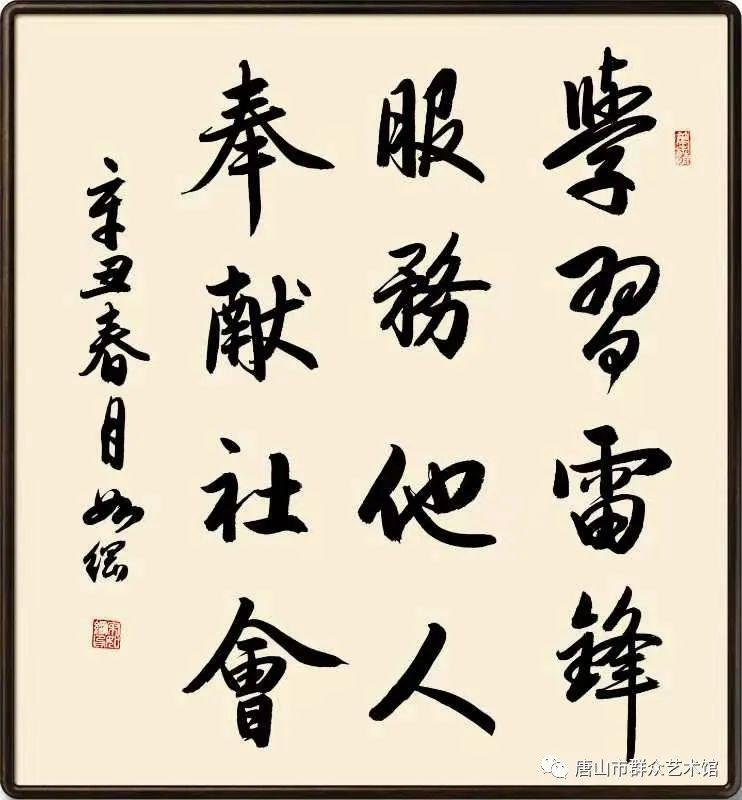 學習雷鋒
服務他人
奉献社會
辛丑春月如纲
唐山市群众艺术馆